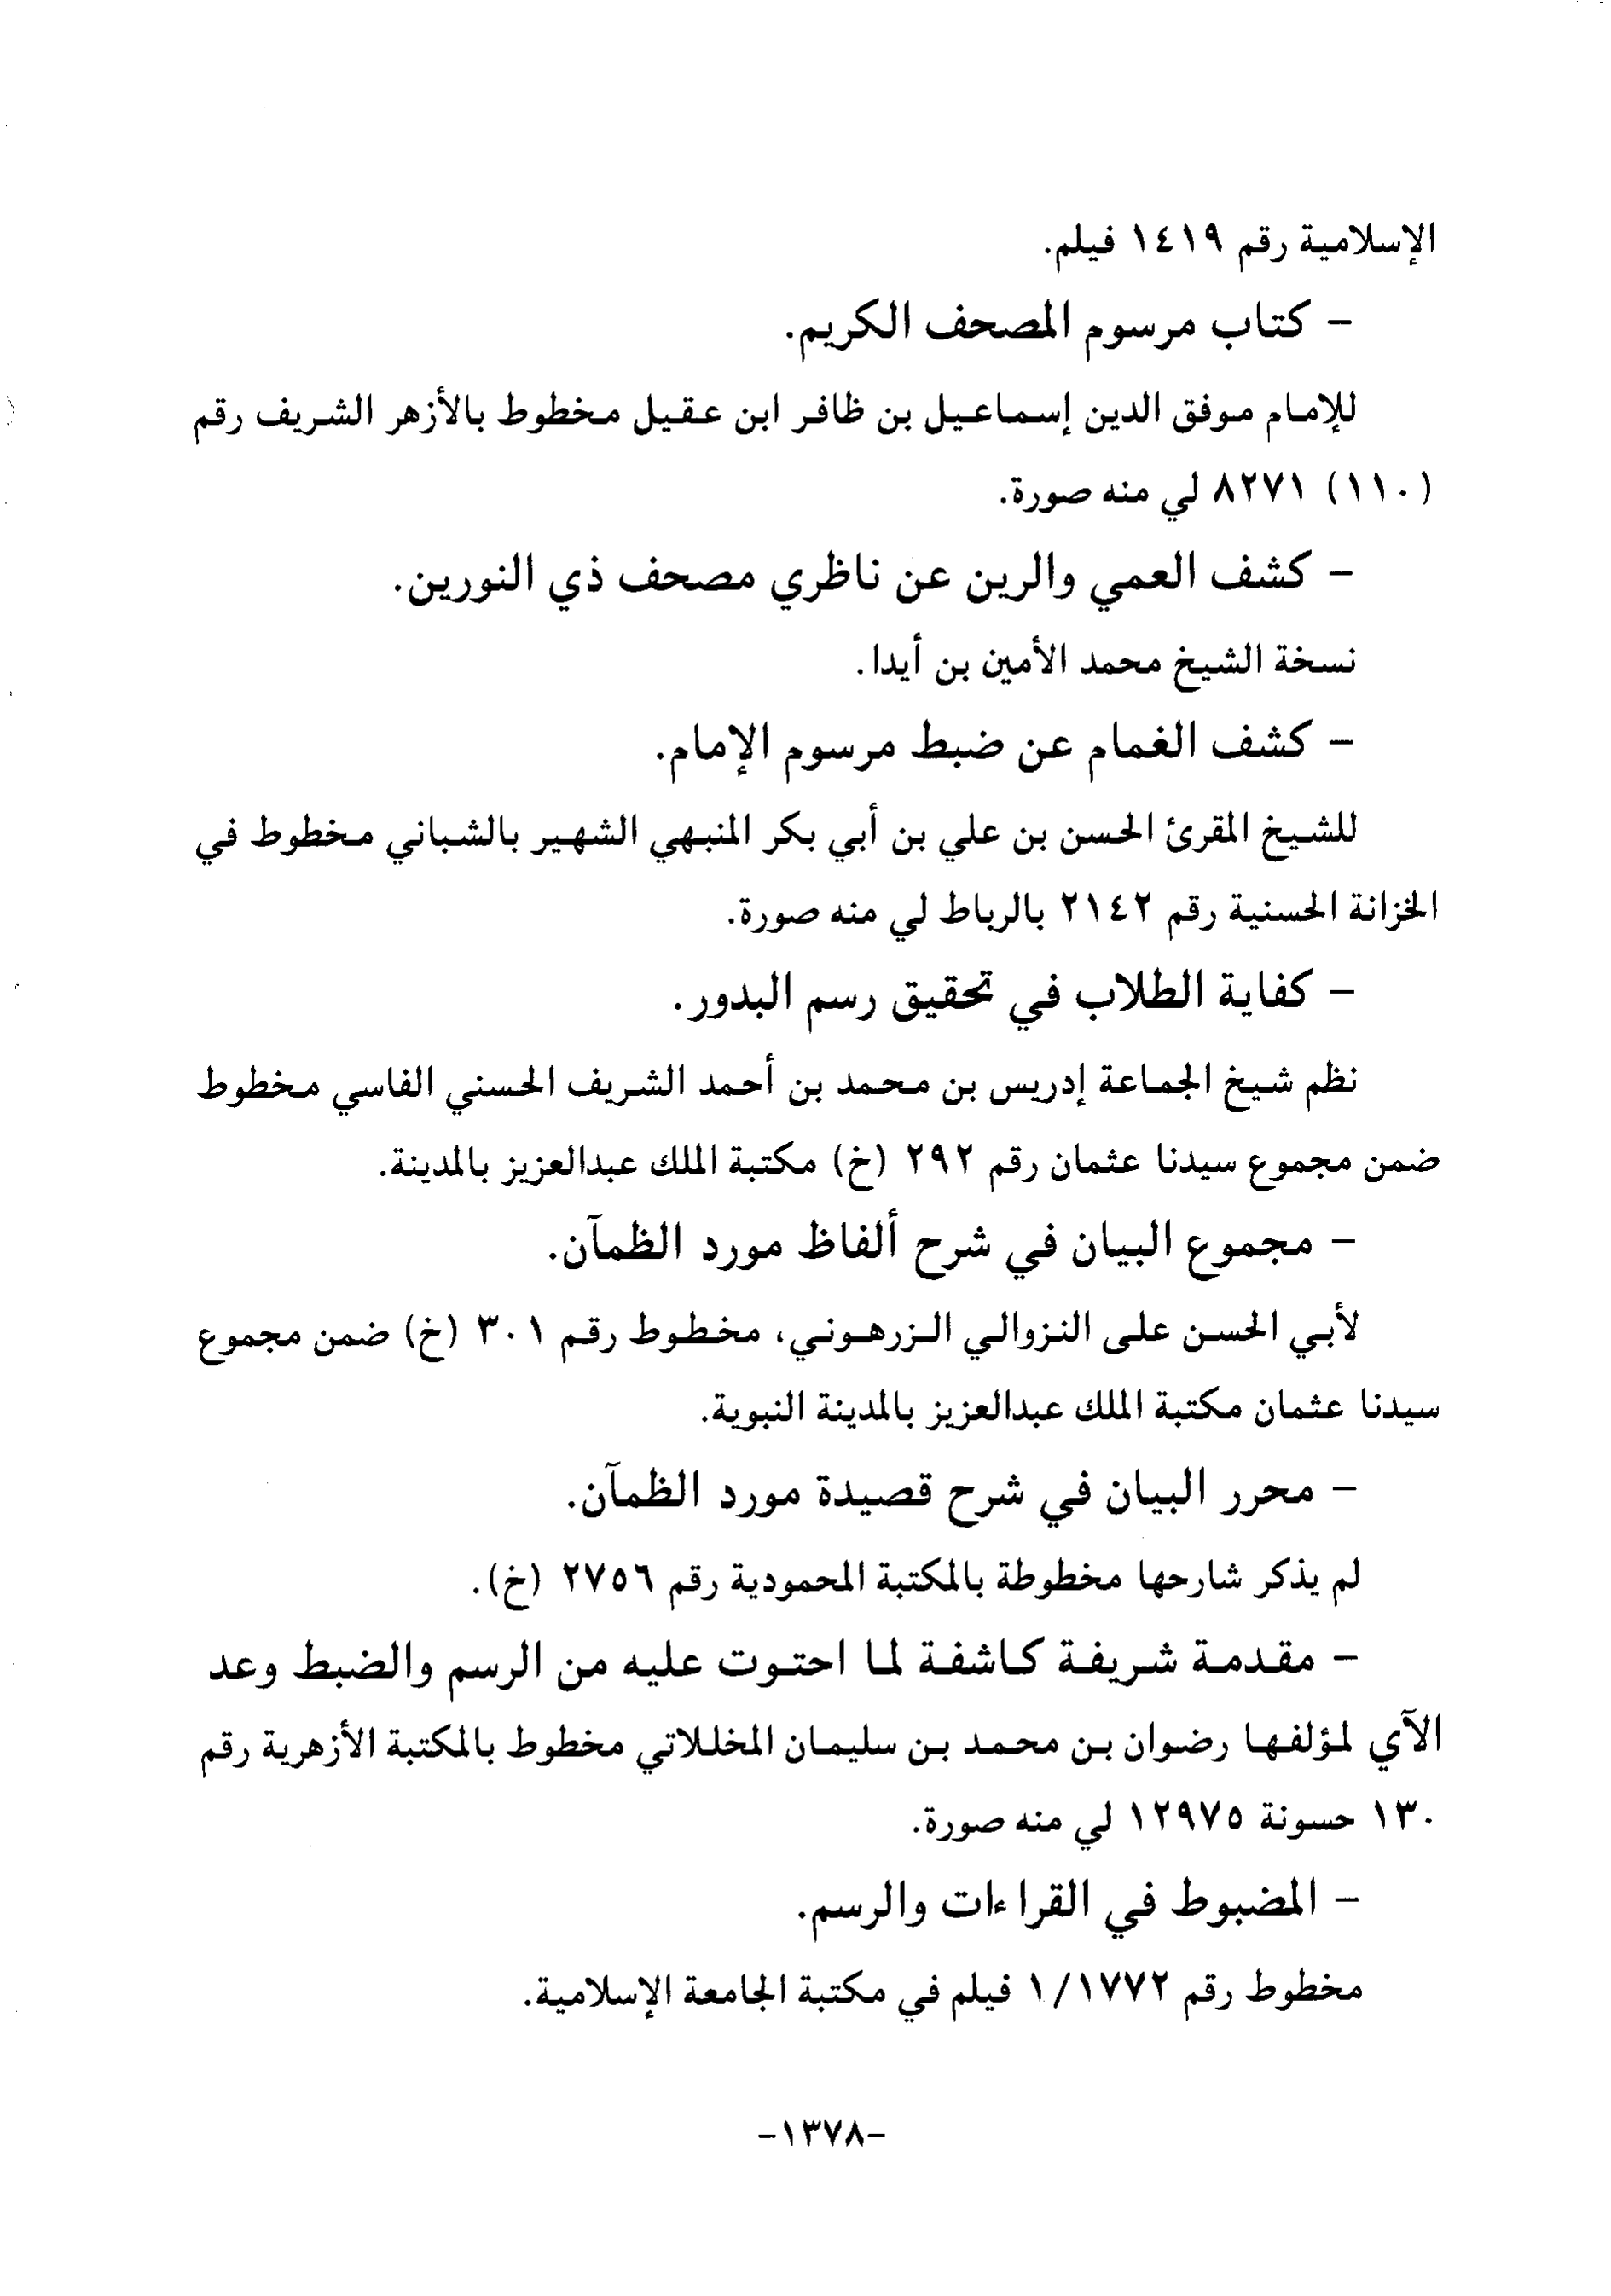 الإسلامية رقم ١٤١٩ فيلم.
- كتاب مرسوم المصحف الكريم.
للإمام موفق الدين إسماعيل بن ظافر ابن عقيل مخطوط بالأزهر الشريف رقم
(١١٠) ٨٢٧١ لي منه صورة.
- كشف العمي والرين عن ناظري مصحف ذي النورين.
نسخة الشيخ محمد الأمين بن أيدا.
- كشف الغمام عن ضبط مرسوم الإمام.
للشيخ المقرئ الحسن بن علي بن أبي بكر المنبهي الشهير بالشباني مخطوط في
الخزانة الحسنية رقم ٢١٤٢ بالرباط لي منه صورة.
- كفاية الطلاب في تحقيق رسم البدور.
نظم شيخ الجماعة إدريس بن محمد بن أحمد الشريف الحسني الفاسي مخطوط
ضمن مجموع سيدنا عثمان رقم ٢٩٢ (خ) مكتبة الملك عبدالعزيز بالمدينة.
- مجموع البيان في شرح ألفاظ مورد الظمآن.
لأبي الحسن على النزوالي الزرهوني، مخطوط رقم ٣٠١ (خ) ضمن مجموع
سيدنا عثمان مكتبة الملك عبدالعزيز بالمدينة النبوية.
- محرر البيان في شرح قصيدة مورد الظمآن.
لم يذكر شارحها مخطوطة بالمكتبة المحمودية رقم ٢٧٥٦ (خ).
- مقدمة شريفة كاشفة لما احتوت عليه من الرسم والضبط وعد
الآي لمؤلفها رضوان بن محمد بن سليمان المخللاتي مخطوط بالمكتبة الأزهرية رقم
١٣٠ حسونة ١٢٩٧٥ لي منه صورة.
- المضبوط في القراءات والرسم.
مخطوط رقم ١/١٧٧٢ فيلم في مكتبة الجامعة الإسلامية.
-١٣٧٨-